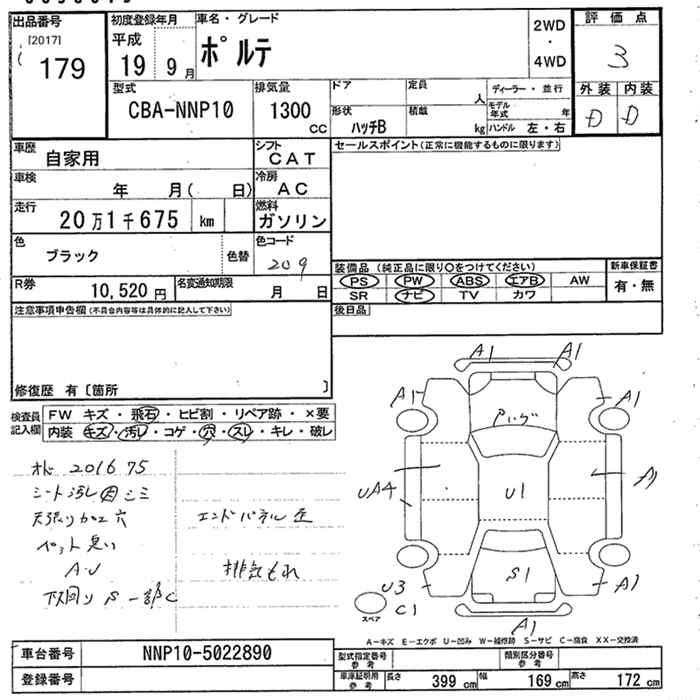 出品番号 初度登録年月 車名・グレード 2WD 評価点
[2017] 平成 ポルテ ・ 3
179 19 9月 4WD
型式 排気量 ドア 定員 人 ディーラー・並行 外装 内装
CBA-NNP10 1300 CC 形状 ハッチB 積載 kg モデル年式 年 D D
ハンドル 左・右
車歴 自家用 シフト CAT セールスポイント(正常に機能するものに限ります)
車検 年 月( 日) 冷房 AC
走行 20万1千675 km 燃料 ガソリン
色 ブラック 色替 色コード 209
装備品(純正品に限り○をつけてください) 新車保証書
R券 10,520円 名変通知期限 月 日 PS PW ABS エアB AW 有・無
SR ナビ TV カワ
注意事項申告欄(不具合内容等は具体的に記入して下さい) 後日品
修復歴 有〔箇所 〕
検査員記入欄 FW キズ・飛石・ヒビ割・リペア跡・×要
内装 キズ・汚レ・コゲ・穴・スレ・キレ・破レ
A1 A1
A1 A1
201675
シート汚レ シミ
天張り 穴
UA4 U1 A1
エンドパネル
ペット臭い
A・U
排気もれ
S1
下回りS一部C
U3 A1
C1
スペア
A1
A-キズ E-エクボ U-凹み W-補修跡 S-サビ C-腐食 XX-交換済
車台番号 NNP10-5022890 型式指定番号 参考 類別区分番号 参考
登録番号 車庫証明用 参考 長さ 399 cm 幅 169 cm 高さ 172 cm